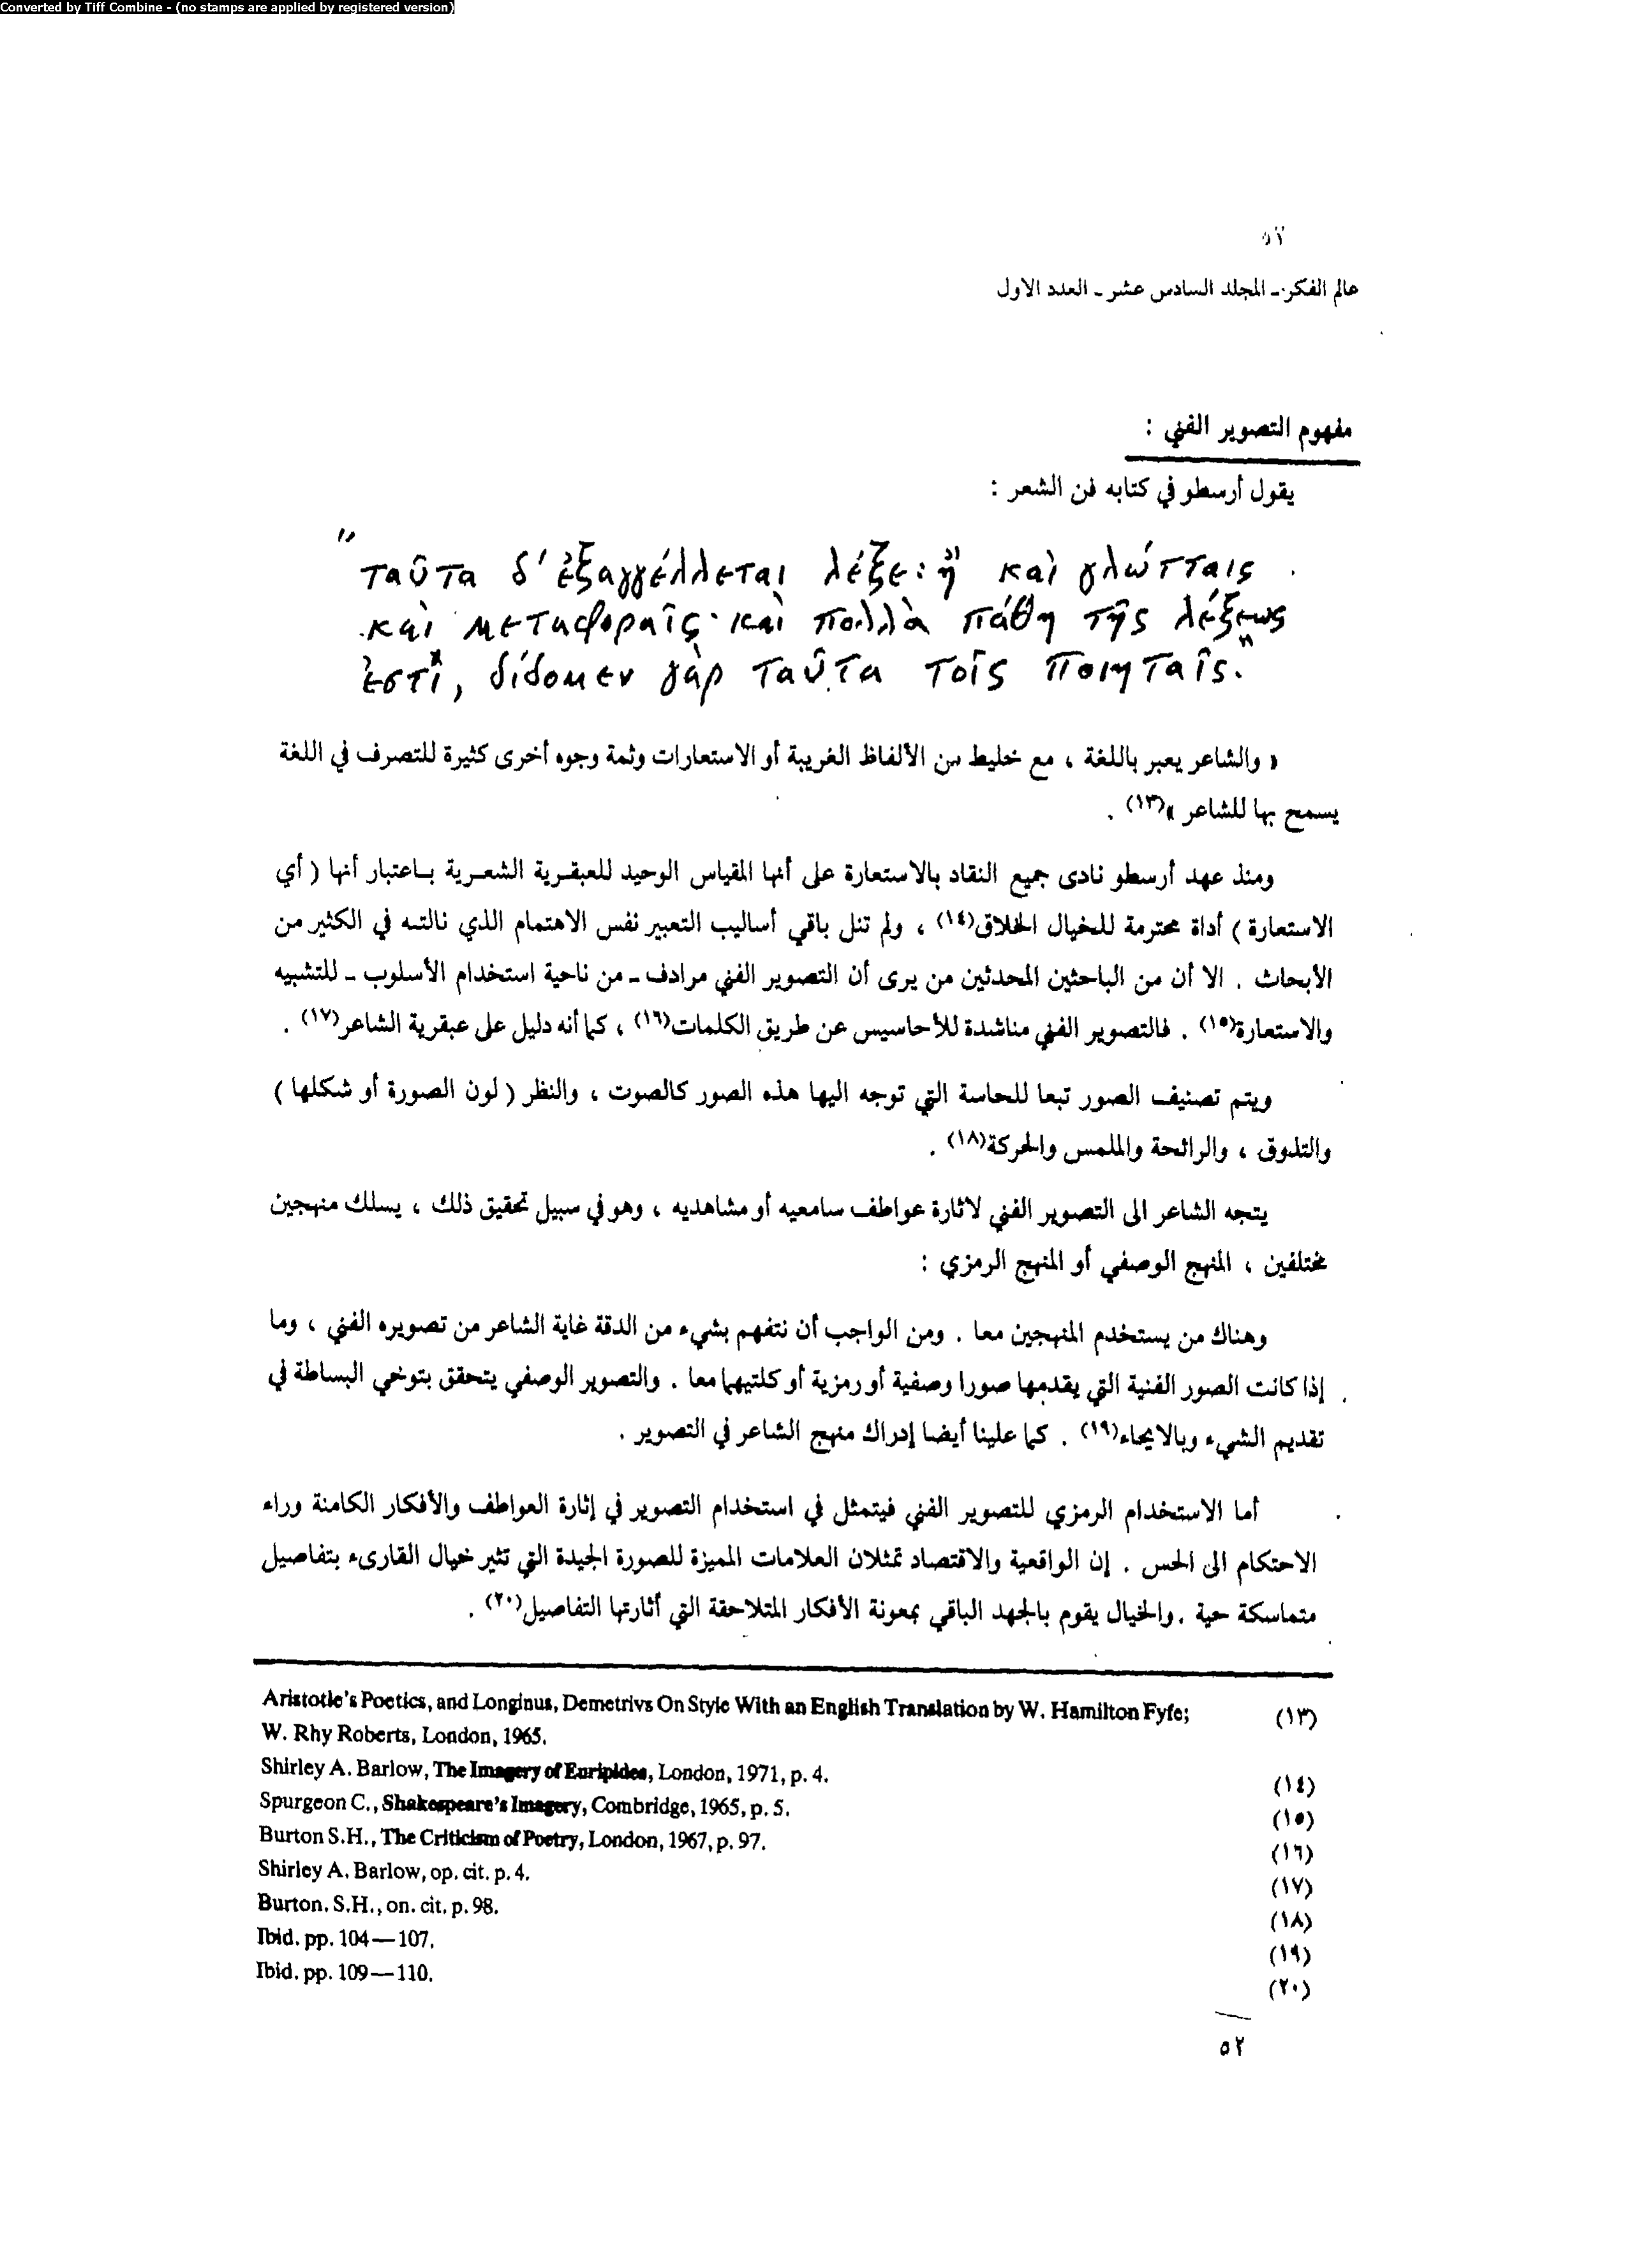 Converted by Tiff Combine - (no stamps are applied by registered version)
٥٢
عالم الفكر - المجلد السادس عشر - العدد الاول
مفهوم التصوير الفني :
يقول أرسطو في كتابه فن الشعر :
"ταῦτα δ' ἐξαγγέλλεται λέξει ἢ καὶ γλώτταις
καὶ μεταφοραῖς· καὶ πολλὰ πάθη τῆς λέξεως
ἐστί, δίδομεν γὰρ ταῦτα τοῖς ποιηταῖς."
« والشاعر يعبر باللغة ، مع خليط من الألفاظ الغريبة أو الاستعارات وثمة وجوه أخرى كثيرة للتصرف في اللغة
يسمح بها للشاعر »(١٣) .
ومنذ عهد أرسطو نادى جميع النقاد بالاستعارة على أنها المقياس الوحيد للعبقرية الشعرية باعتبار أنها ( أي
الاستعارة ) أداة محترمة للخيال الخلاق(١٤) ، ولم تنل باقي أساليب التعبير نفس الاهتمام الذي نالته في الكثير من
الأبحاث . الا أن من الباحثين المحدثين من يرى أن التصوير الفني مرادف - من ناحية استخدام الأسلوب - للتشبيه
والاستعارة(١٥) . فالتصوير الفني مناشدة للأحاسيس عن طريق الكلمات(١٦) ، كما أنه دليل على عبقرية الشاعر(١٧) .
ويتم تصنيف الصور تبعا للحاسة التي توجه اليها هذه الصور كالصوت ، والنظر ( لون الصورة أو شكلها )
والتذوق ، والرائحة والملمس والحركة(١٨) .
يتجه الشاعر الى التصوير الفني لاثارة عواطف سامعيه أو مشاهديه ، وهو في سبيل تحقيق ذلك ، يسلك منهجين
مختلفين ، المنهج الوصفي أو المنهج الرمزي :
وهناك من يستخدم المنهجين معا . ومن الواجب أن نتفهم بشيء من الدقة غاية الشاعر من تصويره الفني ، وما
إذا كانت الصور الفنية التي يقدمها صورا وصفية أو رمزية أو كلتيهما معا . والتصوير الوصفي يتحقق بتوخي البساطة في
تقديم الشيء وبالايحاء(١٩) . كما علينا أيضا إدراك منهج الشاعر في التصوير .
أما الاستخدام الرمزي للتصوير الفني فيتمثل في استخدام التصوير في إثارة العواطف والأفكار الكامنة وراء
الاحتكام الى الحس . إن الواقعية والاقتصاد تمثلان العلامات المميزة للصورة الجيدة التي تثير خيال القارىء بتفاصيل
متماسكة حية . والخيال يقوم بالجهد الباقي بمعونة الأفكار المتلاحقة التي أثارتها التفاصيل(٢٠) .
(١٣) Aristotle's Poetics, and Longinus, Demetrivs On Style With an English Translation by W. Hamilton Fyfe;
W. Rhy Roberts, London, 1965.
(١٤) Shirley A. Barlow, The Imagery of Euripides, London, 1971, p. 4.
(١٥) Spurgeon C., Shakespeare's Imagery, Combridge, 1965, p. 5.
(١٦) Burton S.H., The Criticism of Poetry, London, 1967, p. 97.
(١٧) Shirley A. Barlow, op. cit. p. 4.
(١٨) Burton. S.H., on. cit. p. 98.
(١٩) Ibid. pp. 104—107.
(٢٠) Ibid. pp. 109—110.
٥٢